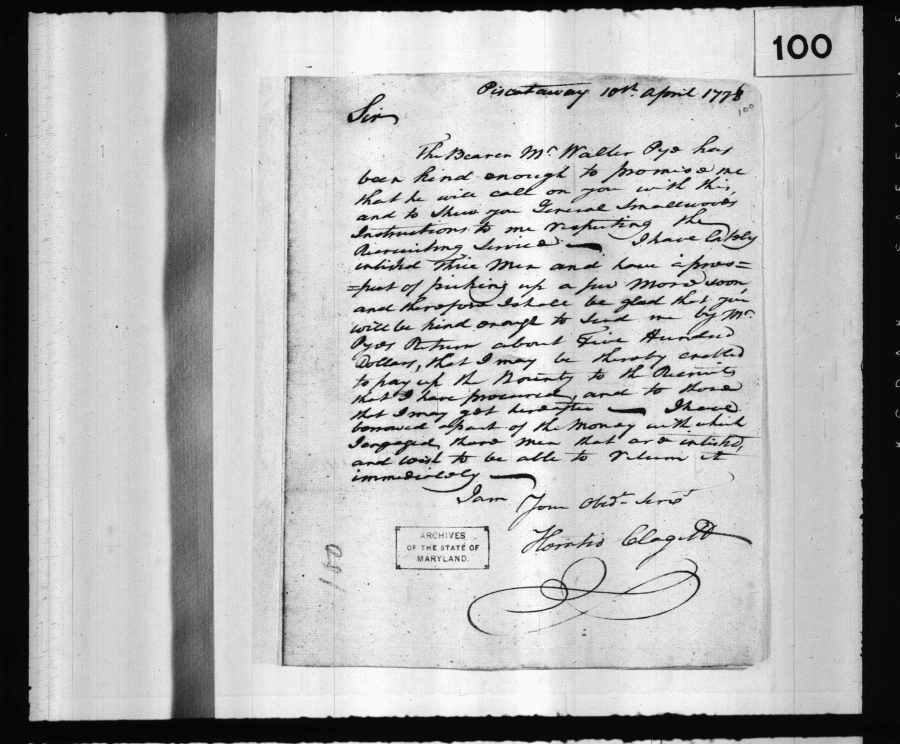 100
Piscataway 10th. April 1778
100
Sir
The Bearer Mr. Walter Pye has
been kind enough to promise me
that he will call on you with this,
and to Shew you General Smallwood's
Instructions to me respecting the
Recruiting Service — I have lately
inlisted three Men and have a pros=
=pect of picking up a few more soon,
and therefore I shall be glad that you
will be kind enough to send me by Mr.
Pyes Return about Five Hundred
Dollars, that I may be thereby enabled
to pay up the Bounty to the Recruits
that I have procured, and to those
that I may get hereafter — I have
borrowed a part of the Money with which
I engaged, these men that are inlisted,
and wish to be able to return it
immediately —
I am Your Obedt. Servt
Horatio Clagett
ARCHIVES
OF THE STATE OF
MARYLAND.
100